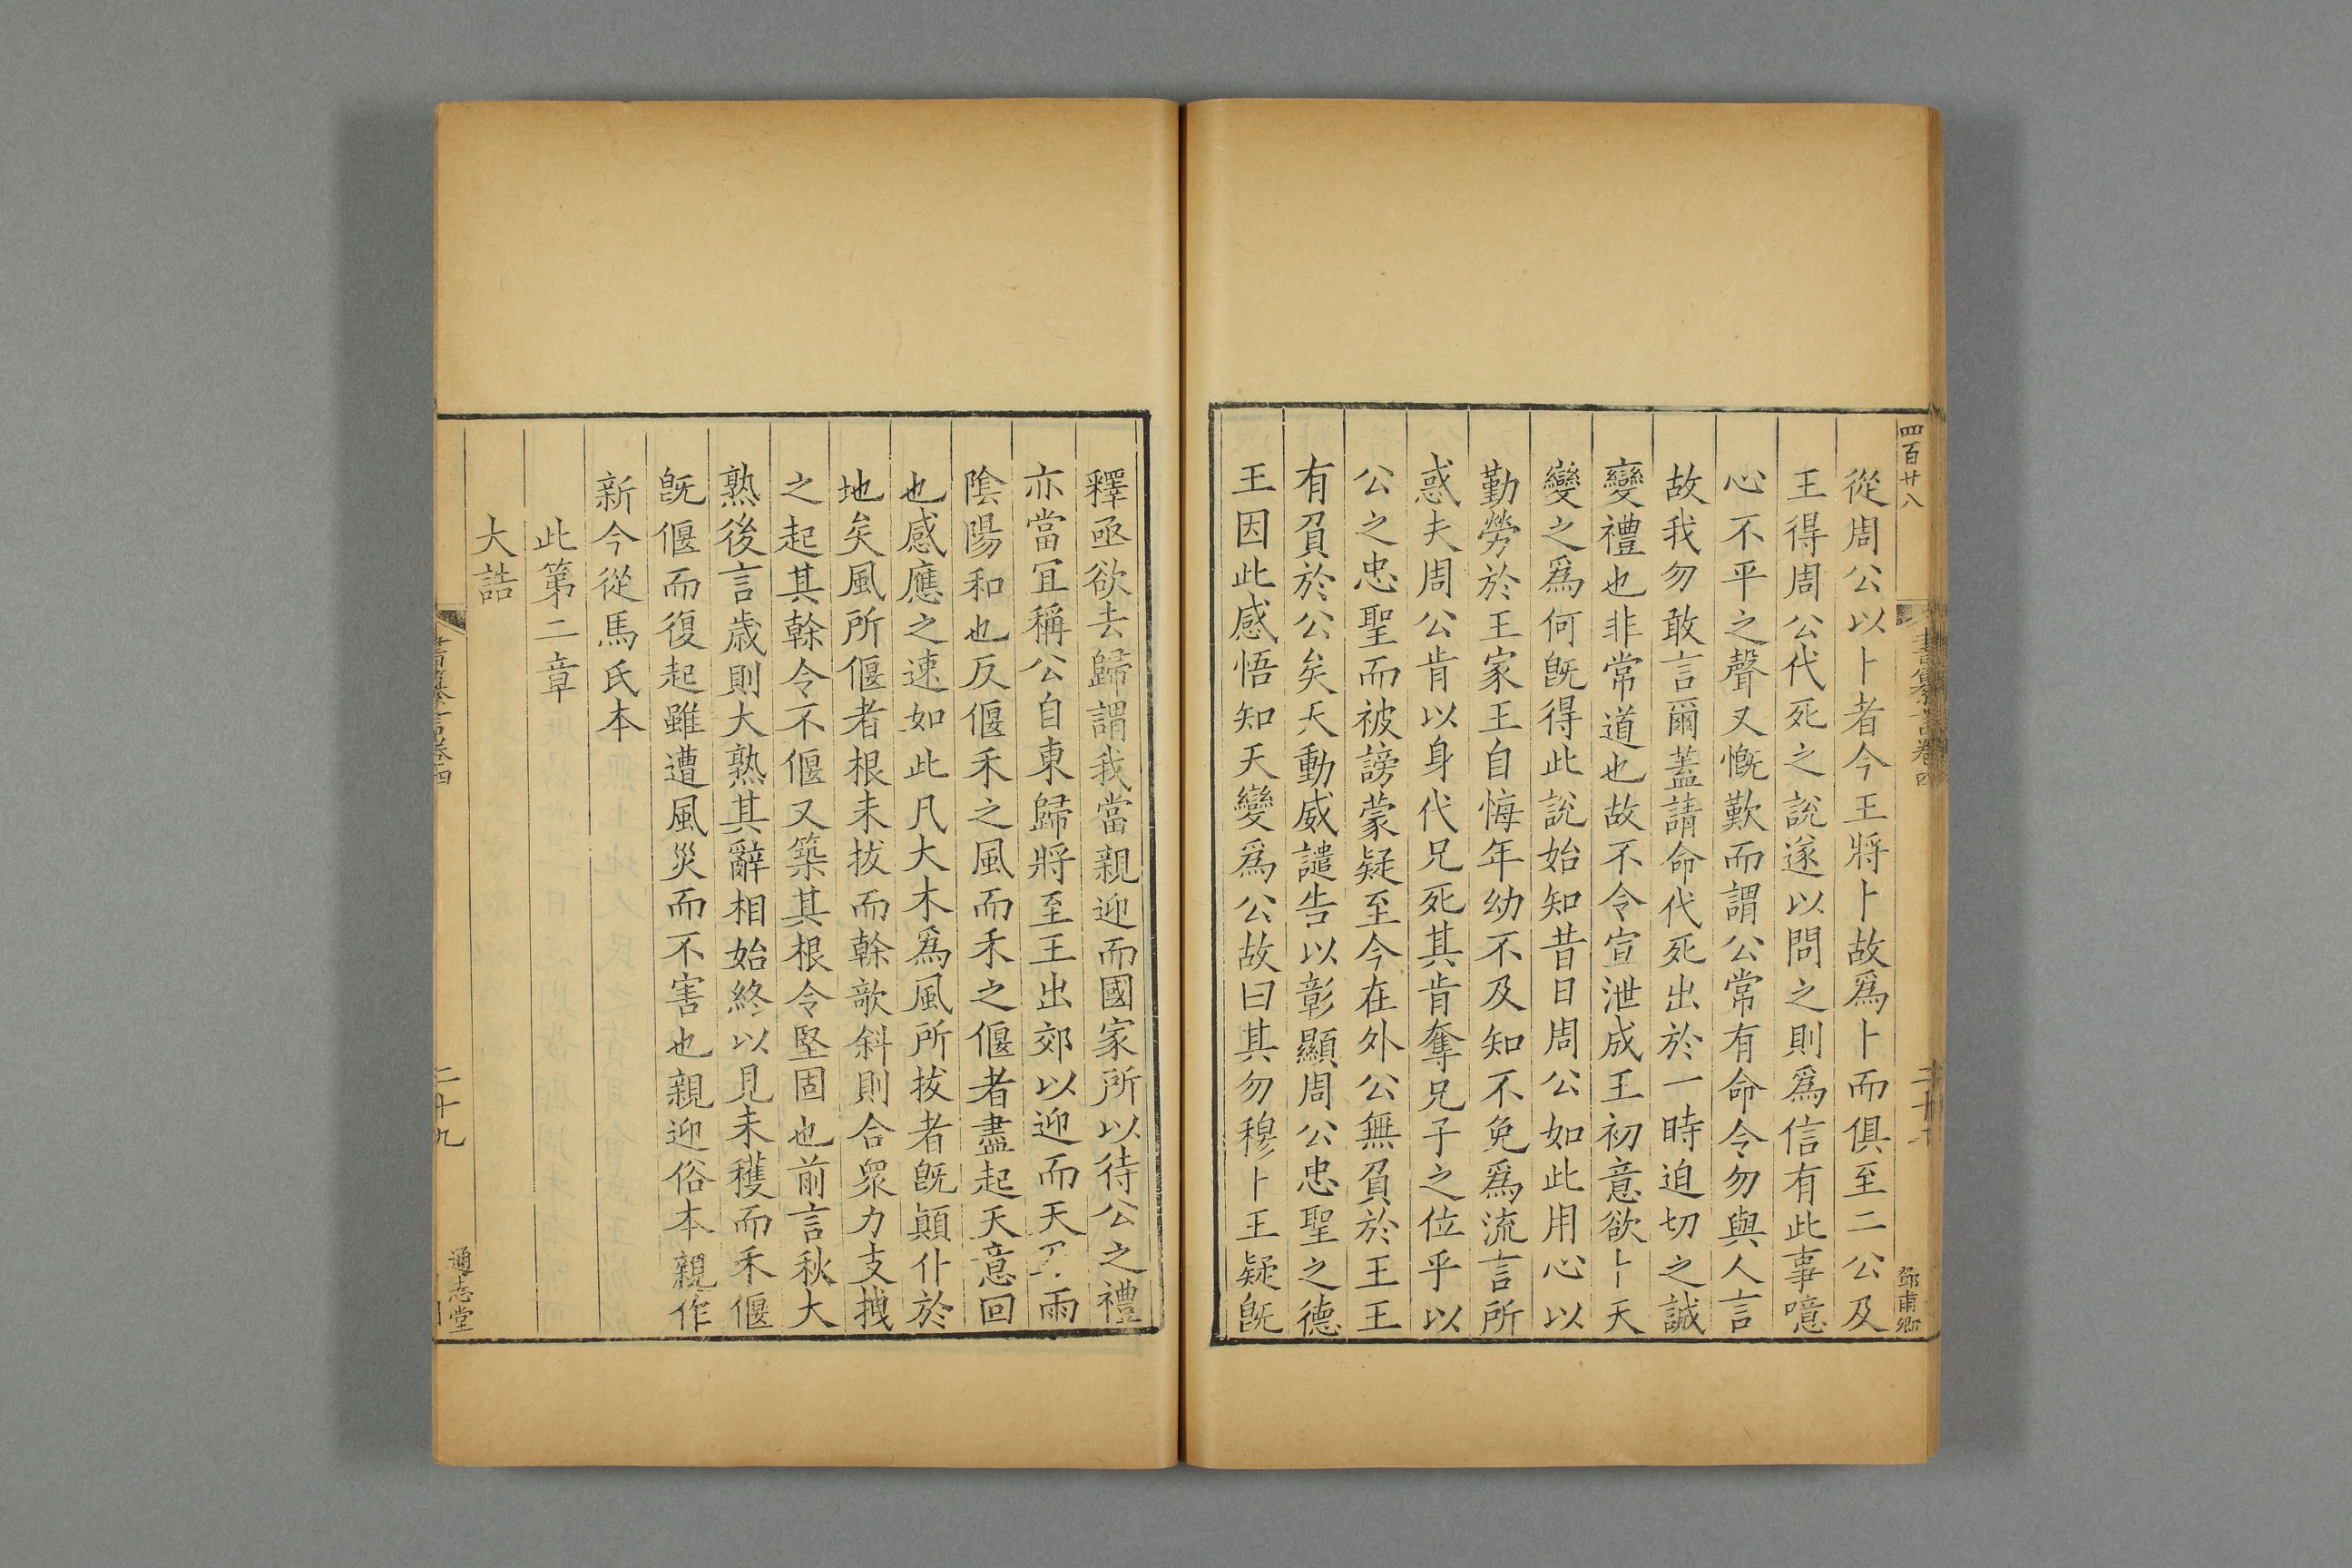 四百廿八
鄧甫卿
從周公以卜者今王將卜故爲卜而俱至二公及
王得周公代死之說遂以問之則爲信有此事噫
心不平之聲又慨歎而謂公常有命令勿與人言
故我勿敢言爾蓋請命代死出於一時迫切之誠
變禮也非常道也故不令宣泄成王初意欲卜天
變之爲何旣得此說始知昔日周公如此用心以
勤勞於王家王自悔年幼不及知不免爲流言所
惑夫周公肯以身代兄死其肯奪兄子之位乎以
公之忠聖而被謗蒙疑至今在外公無負於王王
有負於公矣天動威譴告以彰顯周公忠聖之德
王因此感悟知天變爲公故曰其勿穆卜王疑旣
釋亟欲去歸謂我當親迎而國家所以待公之禮
亦當冝稱公自東歸將至王出郊以迎而天乃雨
陰陽和也反偃禾之風而禾之偃者盡起天意回
也感應之速如此凡大木爲風所拔者旣顚仆於
地矣風所偃者根未拔而榦欹斜則合衆力支拽
之起其榦令不偃又築其根令堅固也前言秋大
熟後言歳則大熟其辭相始終以見未穫而禾偃
旣偃而復起雖遭風災而不害也親迎俗本親作
新今從馬氏本
此第二章
大誥
二十九
通志堂